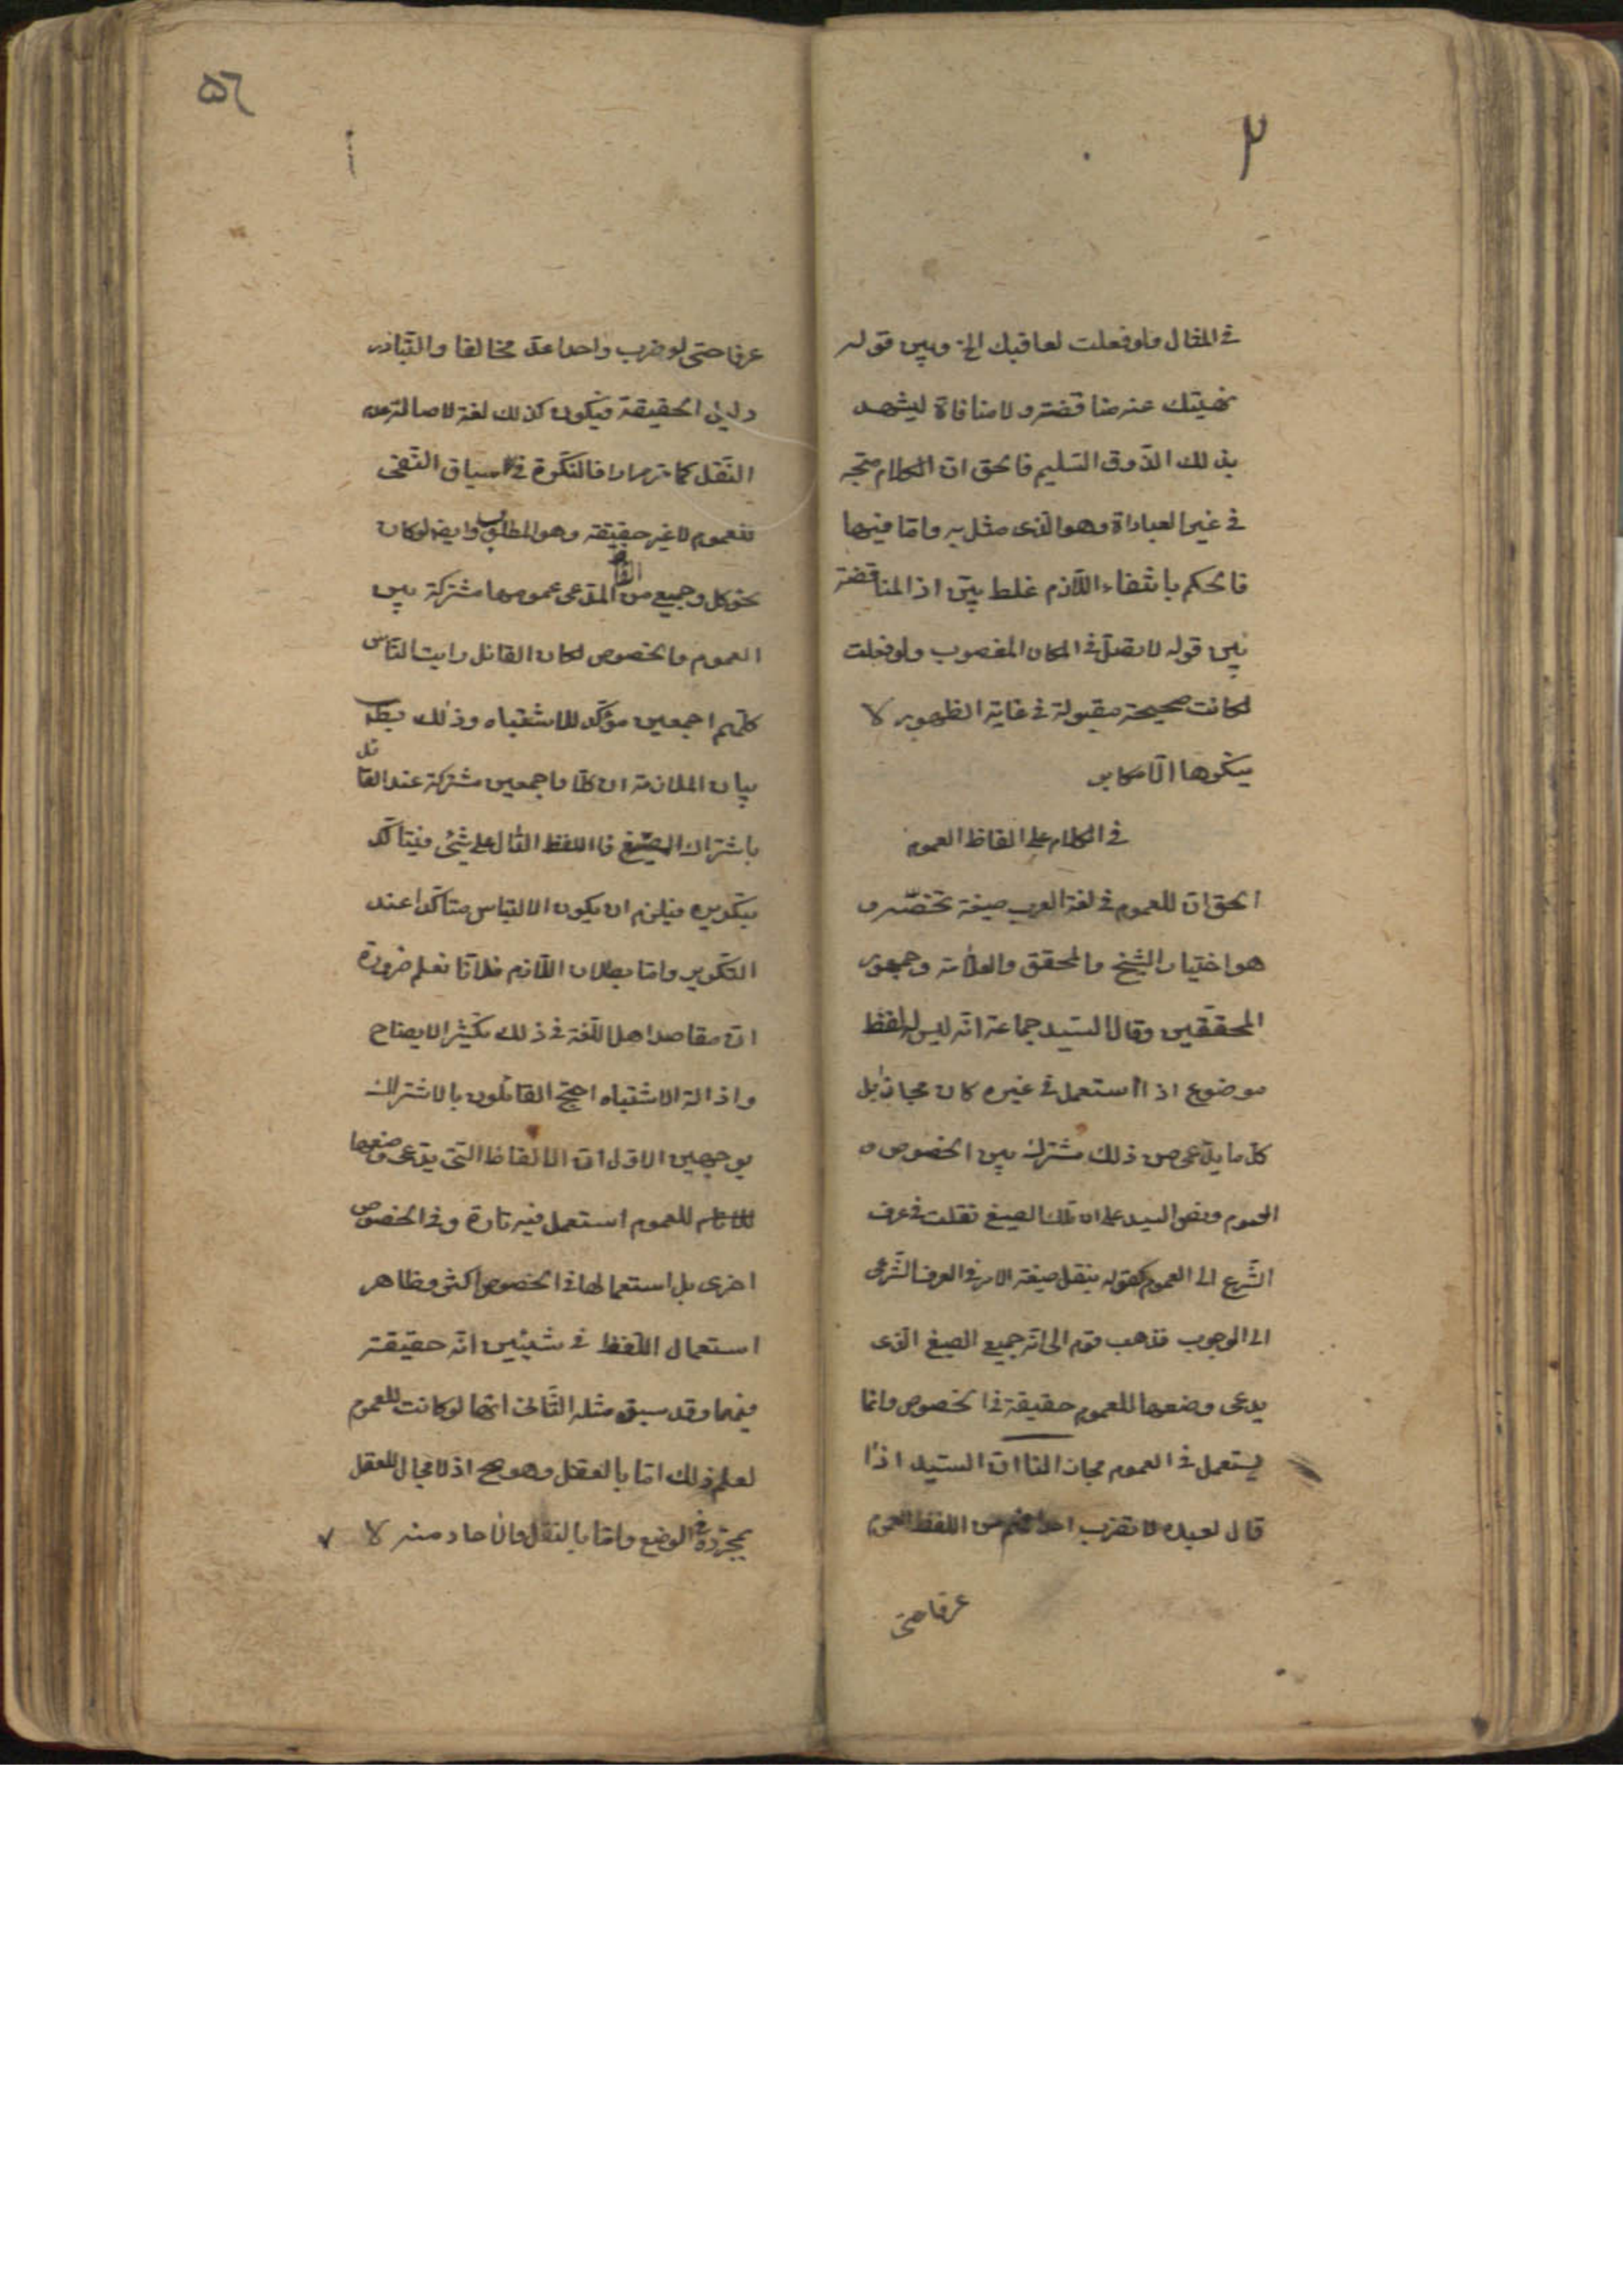 ٣
في المثال ولو فعلت لعاقبتك الخ وبين قوله
نهيتك عنه مناقضة ولا منافاة ليشهد
بذلك الذوق السليم فالحق ان الكلام متجه
في غير العباداة وهو الذى مثل به واما فيها
فالحكم بانتفاء اللازم غلط بيّن اذ المناقضة
بين قوله لا تصلّ في المكان المغصوب ولو فعلت
لكانت صحيحة مقبولة في غاية الظهور لا
ينكرها الّا مكابر
في الكلام على الفاظ العموم
الحق ان للعموم في لغة العرب صيغة تخصّه و
هو اختيار الشيخ والمحقق والعلّامة وجمهور
المحققين وقال السيد جماعة انّه ليس له لفظ
موضوع اذا استعمل في غيره كان مجازا بل
كلّ ما يدّعى من ذلك مشترك بين الخصوص و
العموم ونص السيد على ان تلك الصيغ نقلت في عرف
الشّرع الى العموم كقوله بنقل صيغة الامر في العرف الشّرعى
الى الوجوب فذهب قوم الى انّه جميع الصيغ الذى
يدعى وضعها للعموم حقيقة في الخصوص وانما
يستعمل في العموم مجازا لنا ان السّيد اذا
قال لعبده لا تضرب احدا فهم من اللفظ العموم
عرفا حتى
٥٦
عرفا حتى لو ضرب واحدا عدّ مخالفا والتّبادر
دليل الحقيقة فيكون كذلك لغة لاصالة عدم
النّقل كما مر مرارا فالنكرة في سياق النّفى
للعموم لا غير حقيقة وهو المطلوب وايضا لو كان
نحو كل وجميع من الفاظ المدّعى عمومها مشتركة بين
العموم والخصوص لكان القائل رايت النّاس
كلّهم اجمعين مؤكّدا للاشتباه وذلك بط
بيان الملازمة ان كلّا واجمعين مشتركة عند القائل
باشتراك الصّيغ فاللفظ الدّال على شئ فيتأكّد
بتكريره فيلزم ان يكون الالتباس متاكّدا عند
التّكرير واما بطلان اللّازم فلانّا نعلم ضرورة
انّ مقاصد اهل اللّغة في ذلك تكثير الايضاح
وازالة الاشتباه احتجّ القائلون بالاشتراك
بوجهين الاوّل انّ الالفاظ الّتى يدّعى وضعها
للعموم استعمل فيه تارة وفي الخصوص
اخرى بل استعمالها في الخصوص اكثر وظاهر
استعمال اللّفظ في شيئين انّه حقيقة
فيهما وقد سبق مثله الثّانى انّها لو كانت للعموم
لعلم ذلك امّا بالعقل وهو مح اذ لا مجال للعقل
بمجرّده في الوضع وامّا بالنّقل والآحاد منه لا